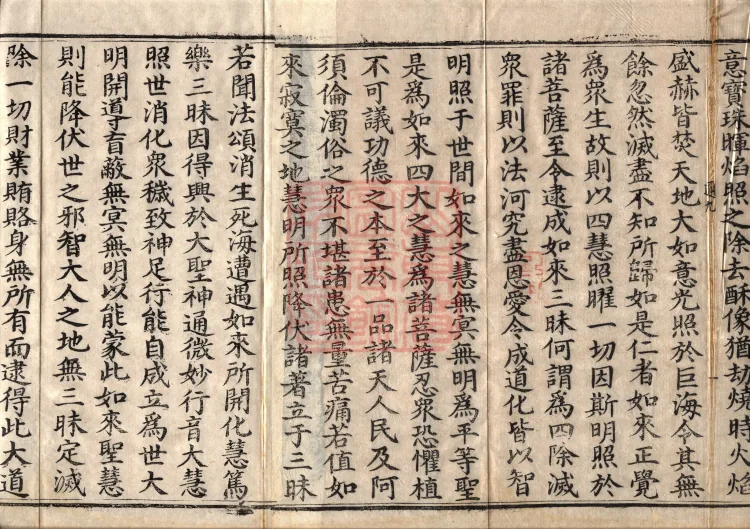 意寶珠暉焰照之除去酥像猶劫燒時火焰
盛赫皆焚天地大如意光照於巨海令其無
餘忽然滅盡不知所歸如是仁者如來正覺
為衆生故則以四慧照曜一切因斯明照於
諸菩薩至令逮成如來三昧何謂為四除滅
衆罪則以法河究盡恩愛令成道化皆以智
明照于世間如來之慧無冥無明為平等聖
是為如來四大之慧為諸菩薩忍衆恐懼植
不可議功德之本至於一品諸天人民及阿
須倫濁俗之衆不堪諸患無量苦痛若值如
來寂寞之地慧明所照降伏諸著立于三昧
若聞法頌消生死海遭遇如來所開化慧篤
樂三昧因得興於大聖神通微妙行音大慧
照世消化衆穢致神足行能自成立為世大
明開導盲蔽無冥無明以能蒙此如來聖慧
則能降伏世之邪智大人之地無三昧定滅
除一切財業賄賂身無所有而逮得此大道